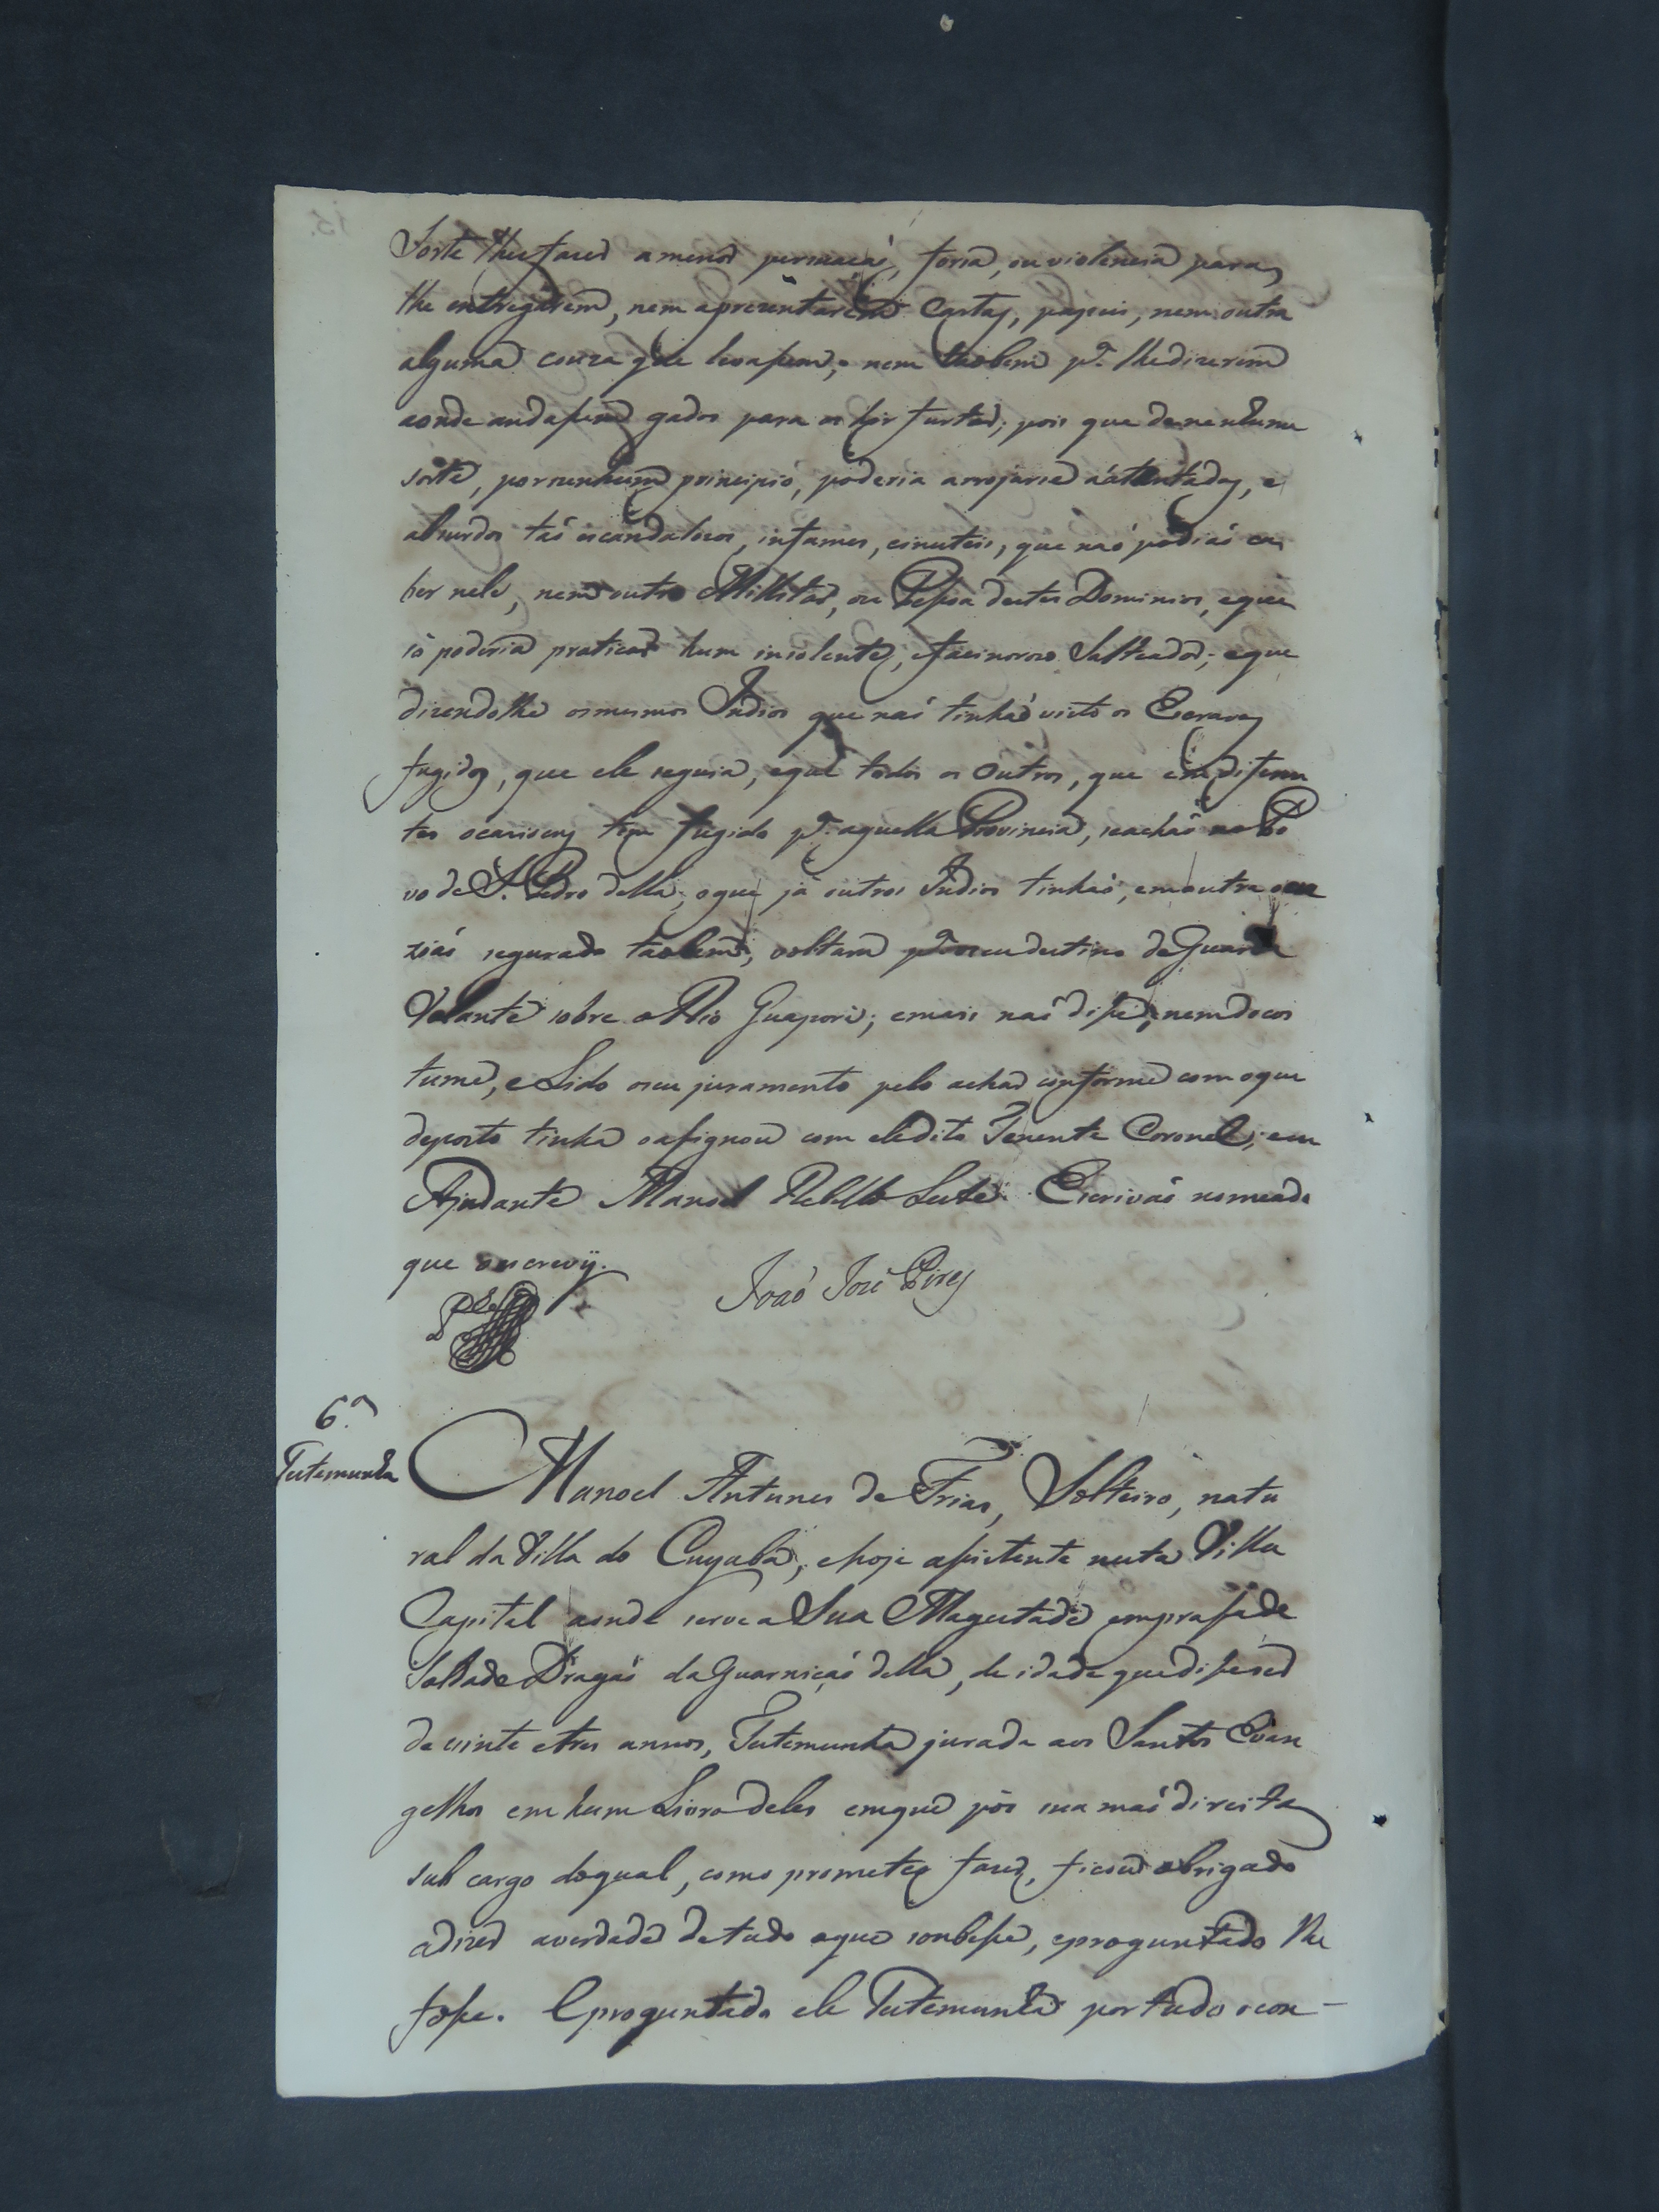 Sorte lhes fazer a menor persuaçaõ, forsa, ou violencia para
lhe entregarem, nem aprezentarem Cartas, papeis, nem outra
alguma couza que levassem; nem taobem pª. lhe dizerem
aonde andassem gados para os hir furtar; pois que de nenhuma
sorte, por nenhum principio, poderia arrojarse a attentados, e
absurdos taõ escandalozos, infames, e inuteis, que naõ podiaõ ca
ber nele, nem outro Millitar, ou Pessoa destes Dominios, e que
só poderia praticar hum insolente, e facinorozo Salteador; e que
dizendolhe os mesmos Indios que naõ tinhaõ visto os Escravos
fugidos, que ele seguia, e que todos os Outros, que em diferen
tes ocazioens tem fugido pª. aquella Provincia, se achaõ no Po
vo de S. Pedro della; o que já outros Indios tinhaõ, em outra oca
ziaõ segurado taobem, voltara pª. o seu destino de Guarda
Volante sobre o Rio Guaporé; e mais naõ disse, nem do cos
tume, e Lido o seu juramento pelo achar conforme com o que
deposto tinha o assignou com ele dito Tenente Coronel; e eu
Ajudante Manoel Rebello Leite Escrivaõ nomeado
que o escrevy.
Joaõ Jozé Pires
6.ª
Testemunha
Manoel Antunes de Frias, Solteiro, natu
ral da Villa do Cuyabá, e hoje assistente nesta Villa
Capital aonde serve a Sua Magestade em prassa de
Soldado Dragaõ da Guarniçaõ della, de idade que disse ser
de vinte e tres annos, Testemunha jurada aos Santos Evan
gelhos em hum Livro deles em que pôs sua maõ direita
sub cargo do qual, como prometeo fazer, ficou obrigado
a dizer a verdade de tudo o que soubesse, e proguntado lhe
fosse. E proguntado ele Testemunha por tudo o con-